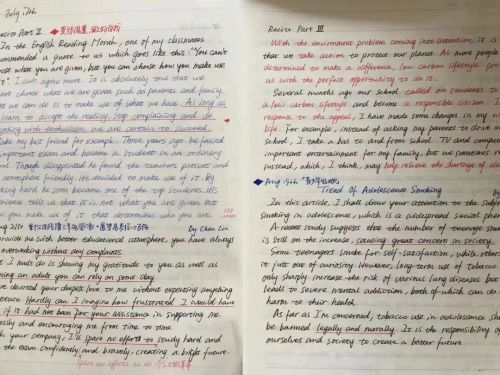 July 17th
Recite Part II
In the English Reading Month, one of my classmates
recommended a quote to us which goes like this: "You can't
choose what you are given, but you can choose how you make use
of it." I can't agree more. It is absolutely true that we
cannot choose what we are given such as parents and family,
what we can do is to make use of what we have. As long as
learn to accept the reality, stop complaining and do
everything with enthusiasm, we are certain to succeed.
Take my best friend for example. Three years ago he failed
important exam and became a student in an ordinary
school. Though disappointed he found the teachers patient and
atmosphere friendly. He decided to make use of it. By
working hard he soon became one of the top students. His
universe tells us that it is not what you are given but
how you make use of it that determines who you are.
Aug 21st By Chen Lin
provide me with better educational atmosphere, you have always
overworking without any complaints.
I must do is showing my gratitude to you as well as
being an adult you can rely on some day.
devoted your deepest love to me without expecting anything
return. Hardly can I imagine how frustrated I would have
if it had not been for your assistance in supporting me
selflessly and encouraging me from time to time.
With your company, I'll spare no efforts to study hard and
the exam confidently and bravely, creating a bright future.
spare no efforts to do
Recite Part III
With the environment problem coming into attention, It is
that we take action to protect our planet. As more people
determined to make a difference, low carbon lifestyle
us with the perfect opportunity to do it.
Several months ago our school called on students to
a low-carbon lifestyle and become a responsible citizen.
response to the appeal, I have made some changes in my
life. For example, instead of asking my parents to drive
school, I take a bus to and from school. TV and computer
important entertainment for my family, but we sometimes
instead, which, I think, may help relieve the shortage of
Aug 19th
Trend Of Adolescence Smoking
In this article I shall draw your attention to the subject
smoking in adolescence, which is a widespread social
A recent study suggests that the number of teenage
is still on the increase, causing great concern in society.
Some teenagers smoke for self-satisfaction, while others
it just out of curiosity. However, long-term use of tobacco
only sharply increase the risk of various lung diseases but
leads to severe mental addiction, both of which can do
harm to their health.
As far as I'm concerned, tobacco use in adolescence
be banned legally and morally. It is the responsibility of
ourselves and society to create a better future.